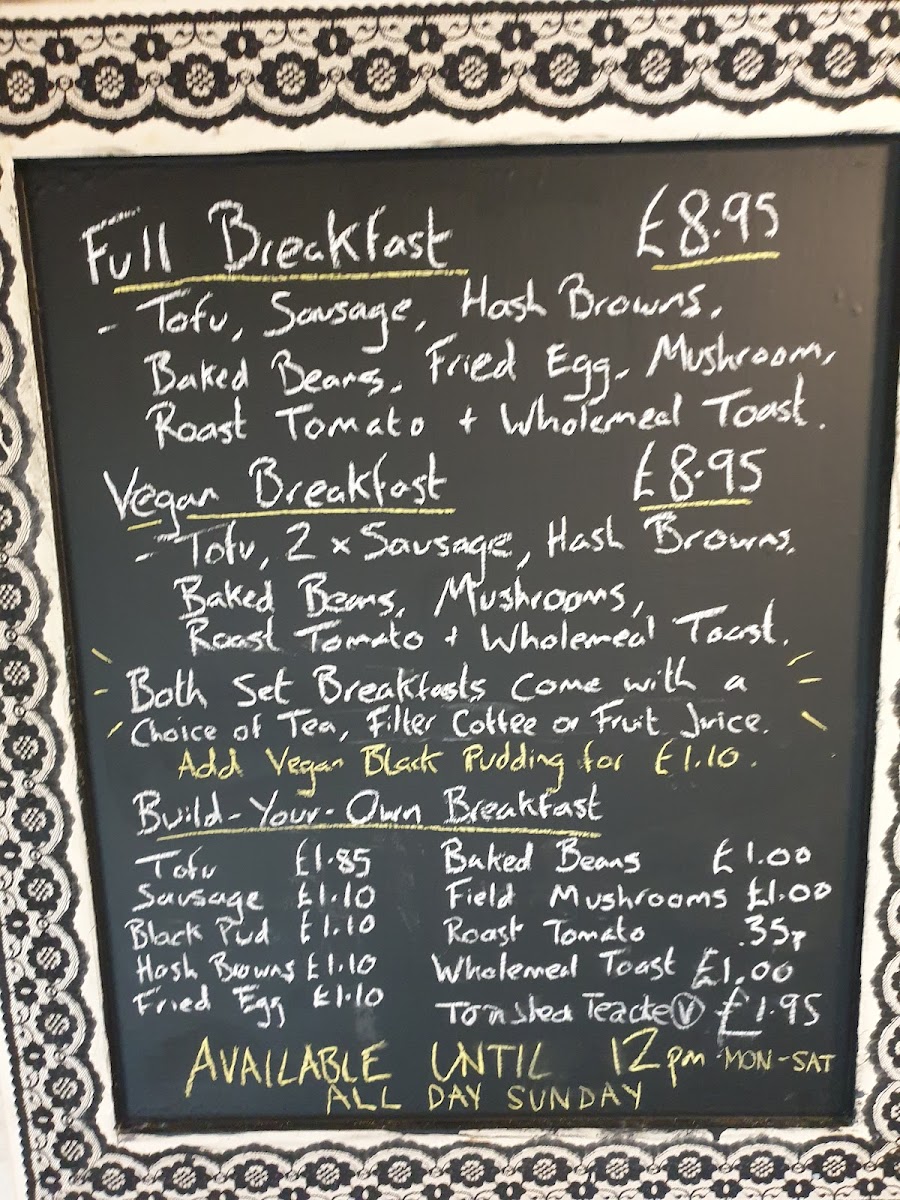 Full Breakfast £8.95
- Tofu, Sausage, Hash Browns,
Baked Beans, Fried Egg, Mushroom,
Roast Tomato + Wholemeal Toast.
Vegan Breakfast £8.95
- Tofu, 2 x Sausage, Hash Browns,
Baked Beans, Mushrooms,
Roast Tomato + Wholemeal Toast.
Both Set Breakfasts come with a
Choice of Tea, Filter Coffee or Fruit Juice.
Add Vegan Black Pudding for £1.10.
Build-Your-Own Breakfast
Tofu £1.85 Baked Beans £1.00
Sausage £1.10 Field Mushrooms £1.00
Black Pud £1.10 Roast Tomato .35p
Hash Browns £1.10 Wholemeal Toast £1.00
Fried Egg £1.10 Toasted Teacke V £1.95
AVAILABLE UNTIL 12pm MON-SAT
ALL DAY SUNDAY